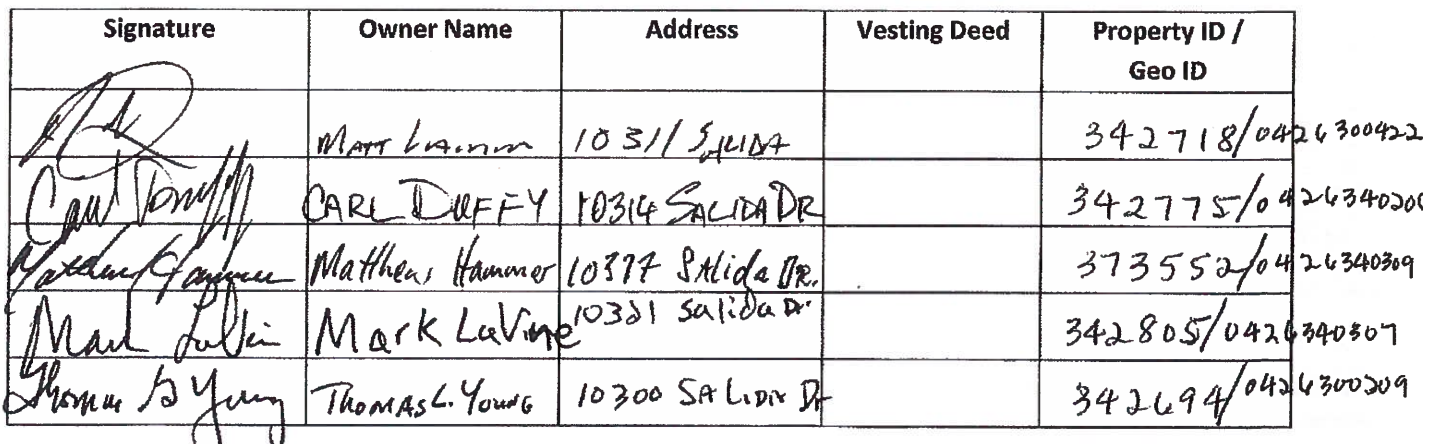 Signature Owner Name Address Vesting Deed Property ID /
Geo ID
MATT 10311 SALIDA 342718/0426300422
CARL DUFFY 10314 SALIDA DR 342775/0426340206
Matthew Hammer 10377 SAlida DR. 373552/0426340309
Mark LaVine Mark LaVine 10321 Salida Dr 342805/0426340307
Thomas G Young THOMAS L. YOUNG 10300 SALIDA Dr 342694/0426300209